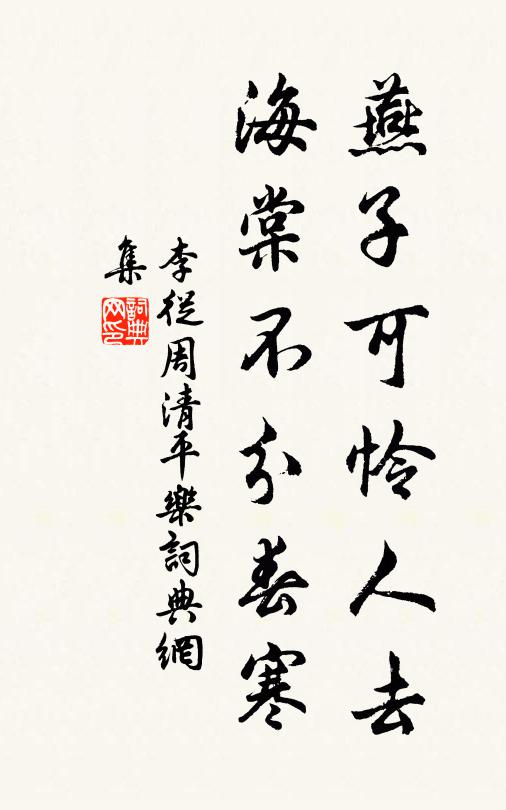 燕子可怜人去
海棠不分春寒
李從周清平樂詞典網
集
詞典網印